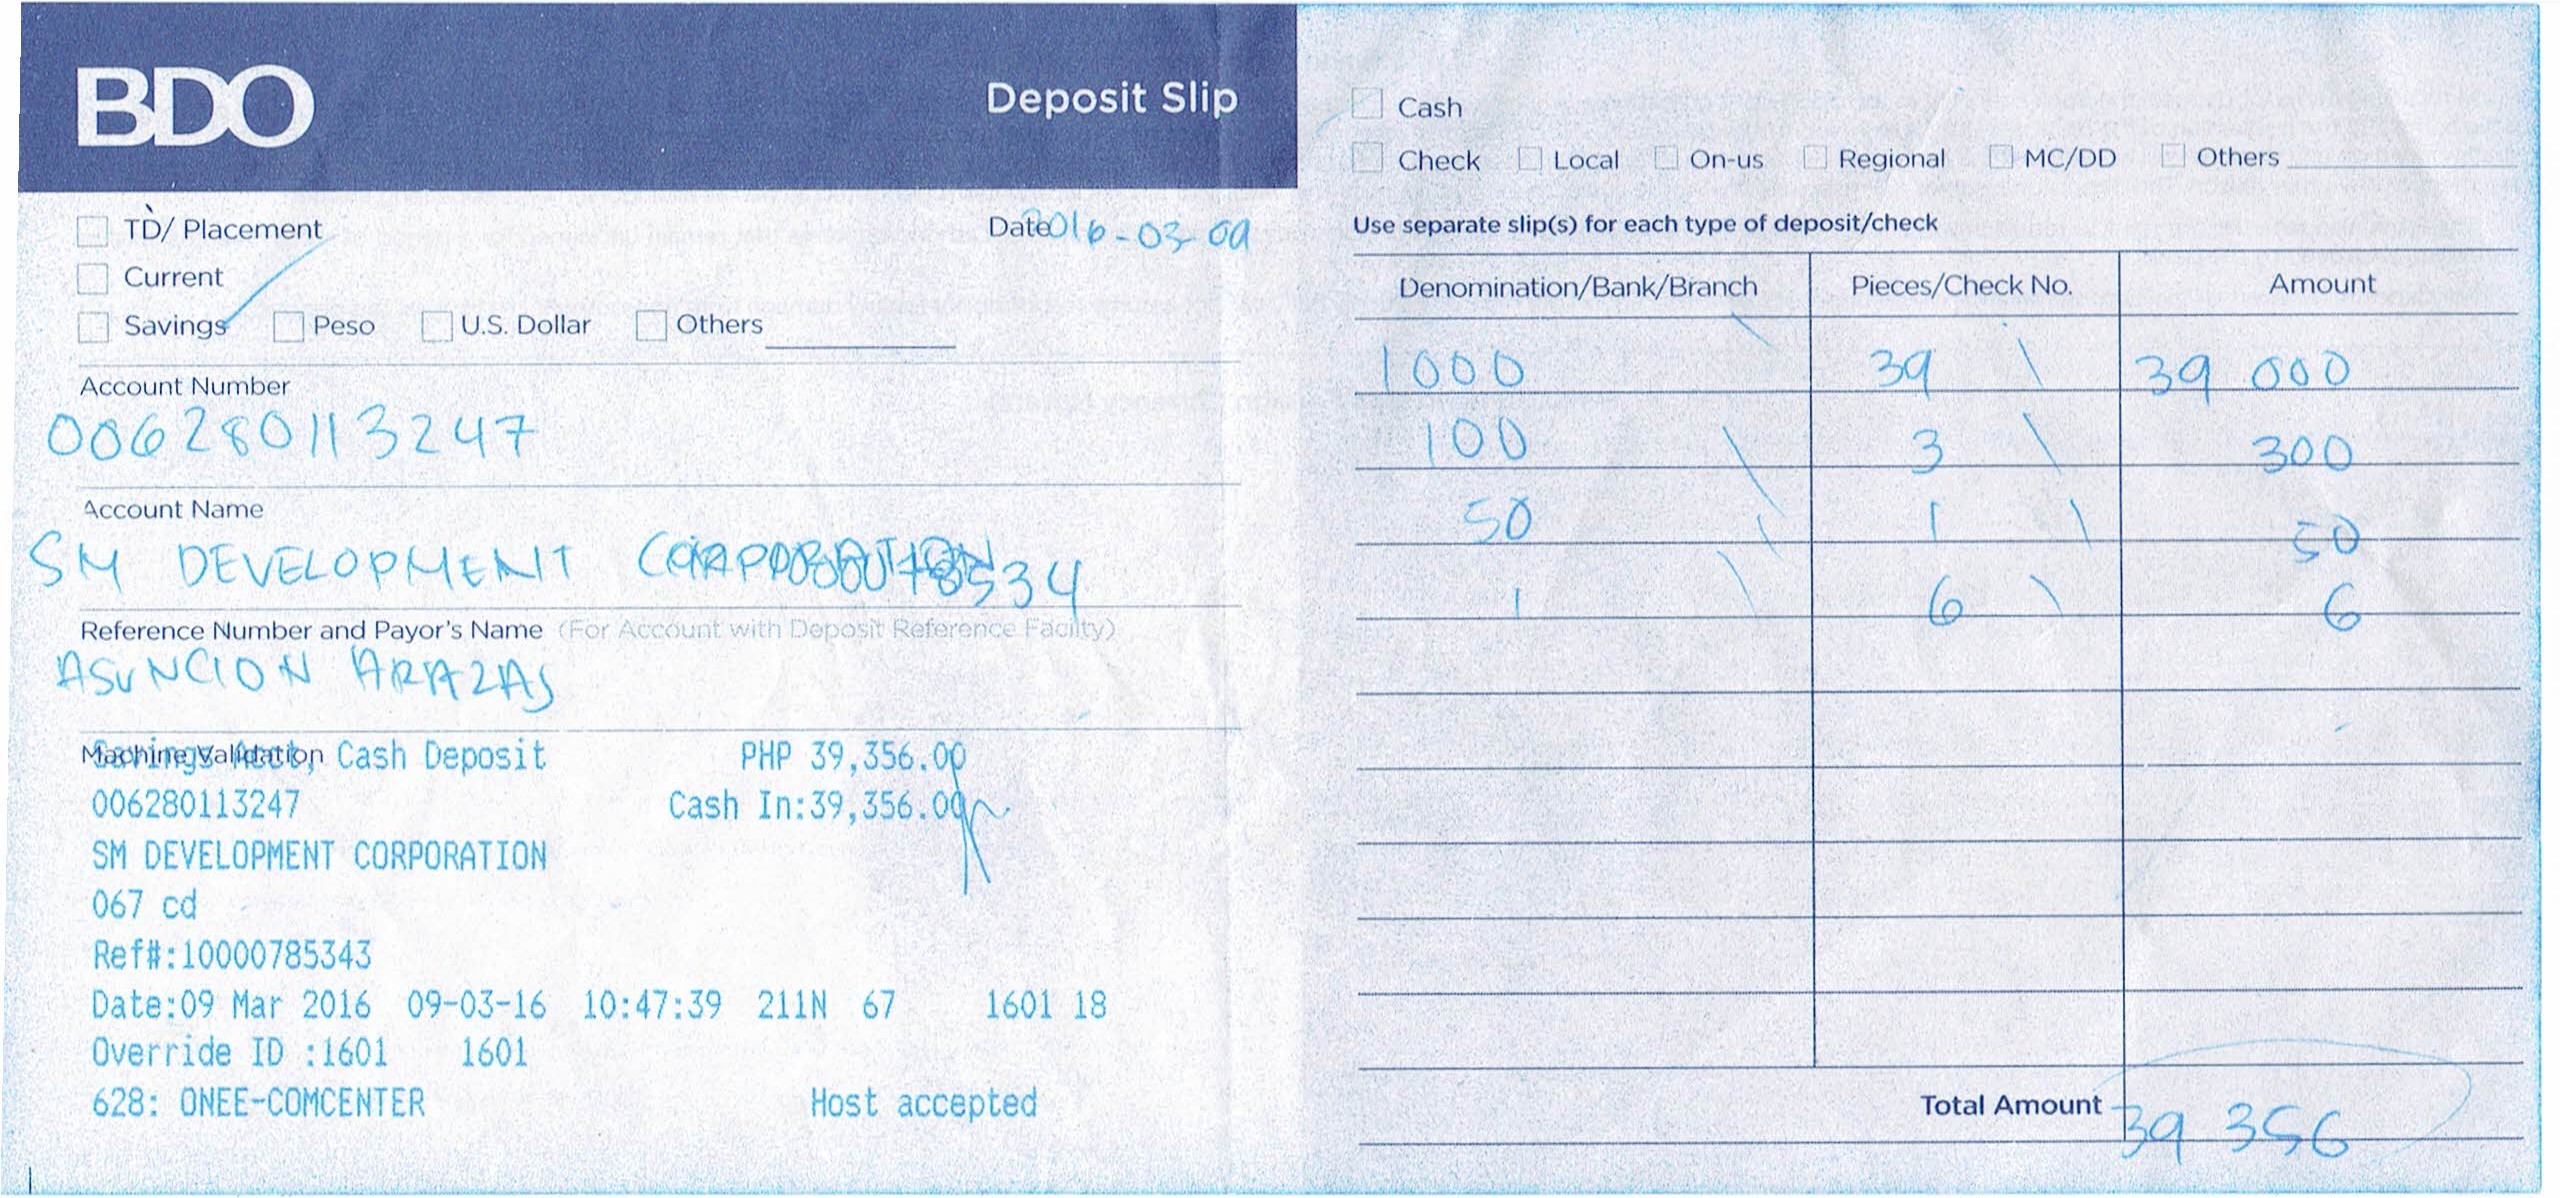 BDO
Deposit Slip
TD/ Placement
Date 2016-03-09
Current
Savings Peso U.S. Dollar Others
Account Number
006280113247
Account Name
SM DEVELOPMENT CORPORATION
Reference Number and Payor's Name (For Account with Deposit Reference Facilty)
ASUNCION ARAZAS
Machine Validation
Savings Acct, Cash Deposit PHP 39,356.00
006280113247 Cash In:39,356.00
SM DEVELOPMENT CORPORATION
067 cd
Ref#:10000785343
Date:09 Mar 2016 09-03-16 10:47:39 211N 67 1601 18
Override ID :1601 1601
628: ONEE-COMCENTER Host accepted
Cash
Check Local On-us Regional MC/DD Others
Use separate slip(s) for each type of deposit/check
Denomination/Bank/Branch Pieces/Check No. Amount
1000 39 39 000
100 3 300
50 1 50
1 6 6
Total Amount 39 356